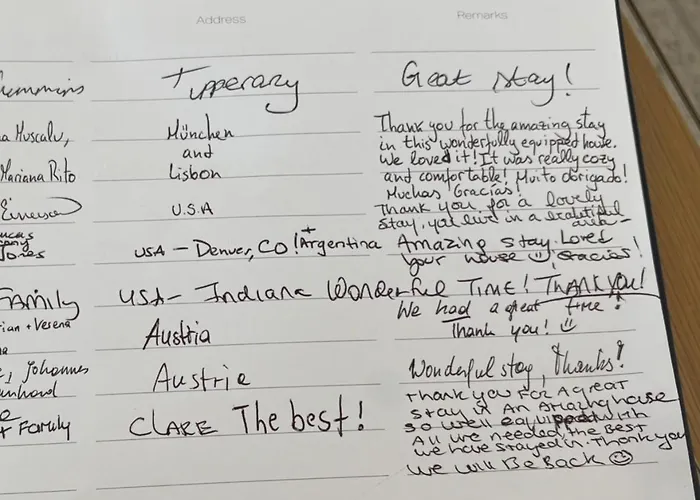 Address Remarks
Cummins Tipperary Great Stay!
Muscalu, München Thank you for the amazing stay
and in this wonderfully equipped house.
Mariana Rito Lisbon We loved it! It was really cozy
and comfortable! Muito obrigado!
Muchas Gracias!
U.S.A Thank you for a lovely
stay, you live in a beautiful
area
Lucas
Jones USA - Denver, CO! + Argentina Amazing stay. Loved
your house ☺ Gracias!
FAMILY USA - Indiana Wonderful Time! THANK YOU!
+ Verena Austria We had a great time!
Thank you! ☺
Johannes Austria Wonderful stay, Thanks!
+ Family CLARE The best! THANK YOU FOR A GREAT
STAY IN AN AMAZING HOUSE
SO WELL EQUIPPED WITH
ALL WE NEEDED, THE BEST
WE HAVE STAYED IN. THANK YOU
WE WILL BE BACK ☺